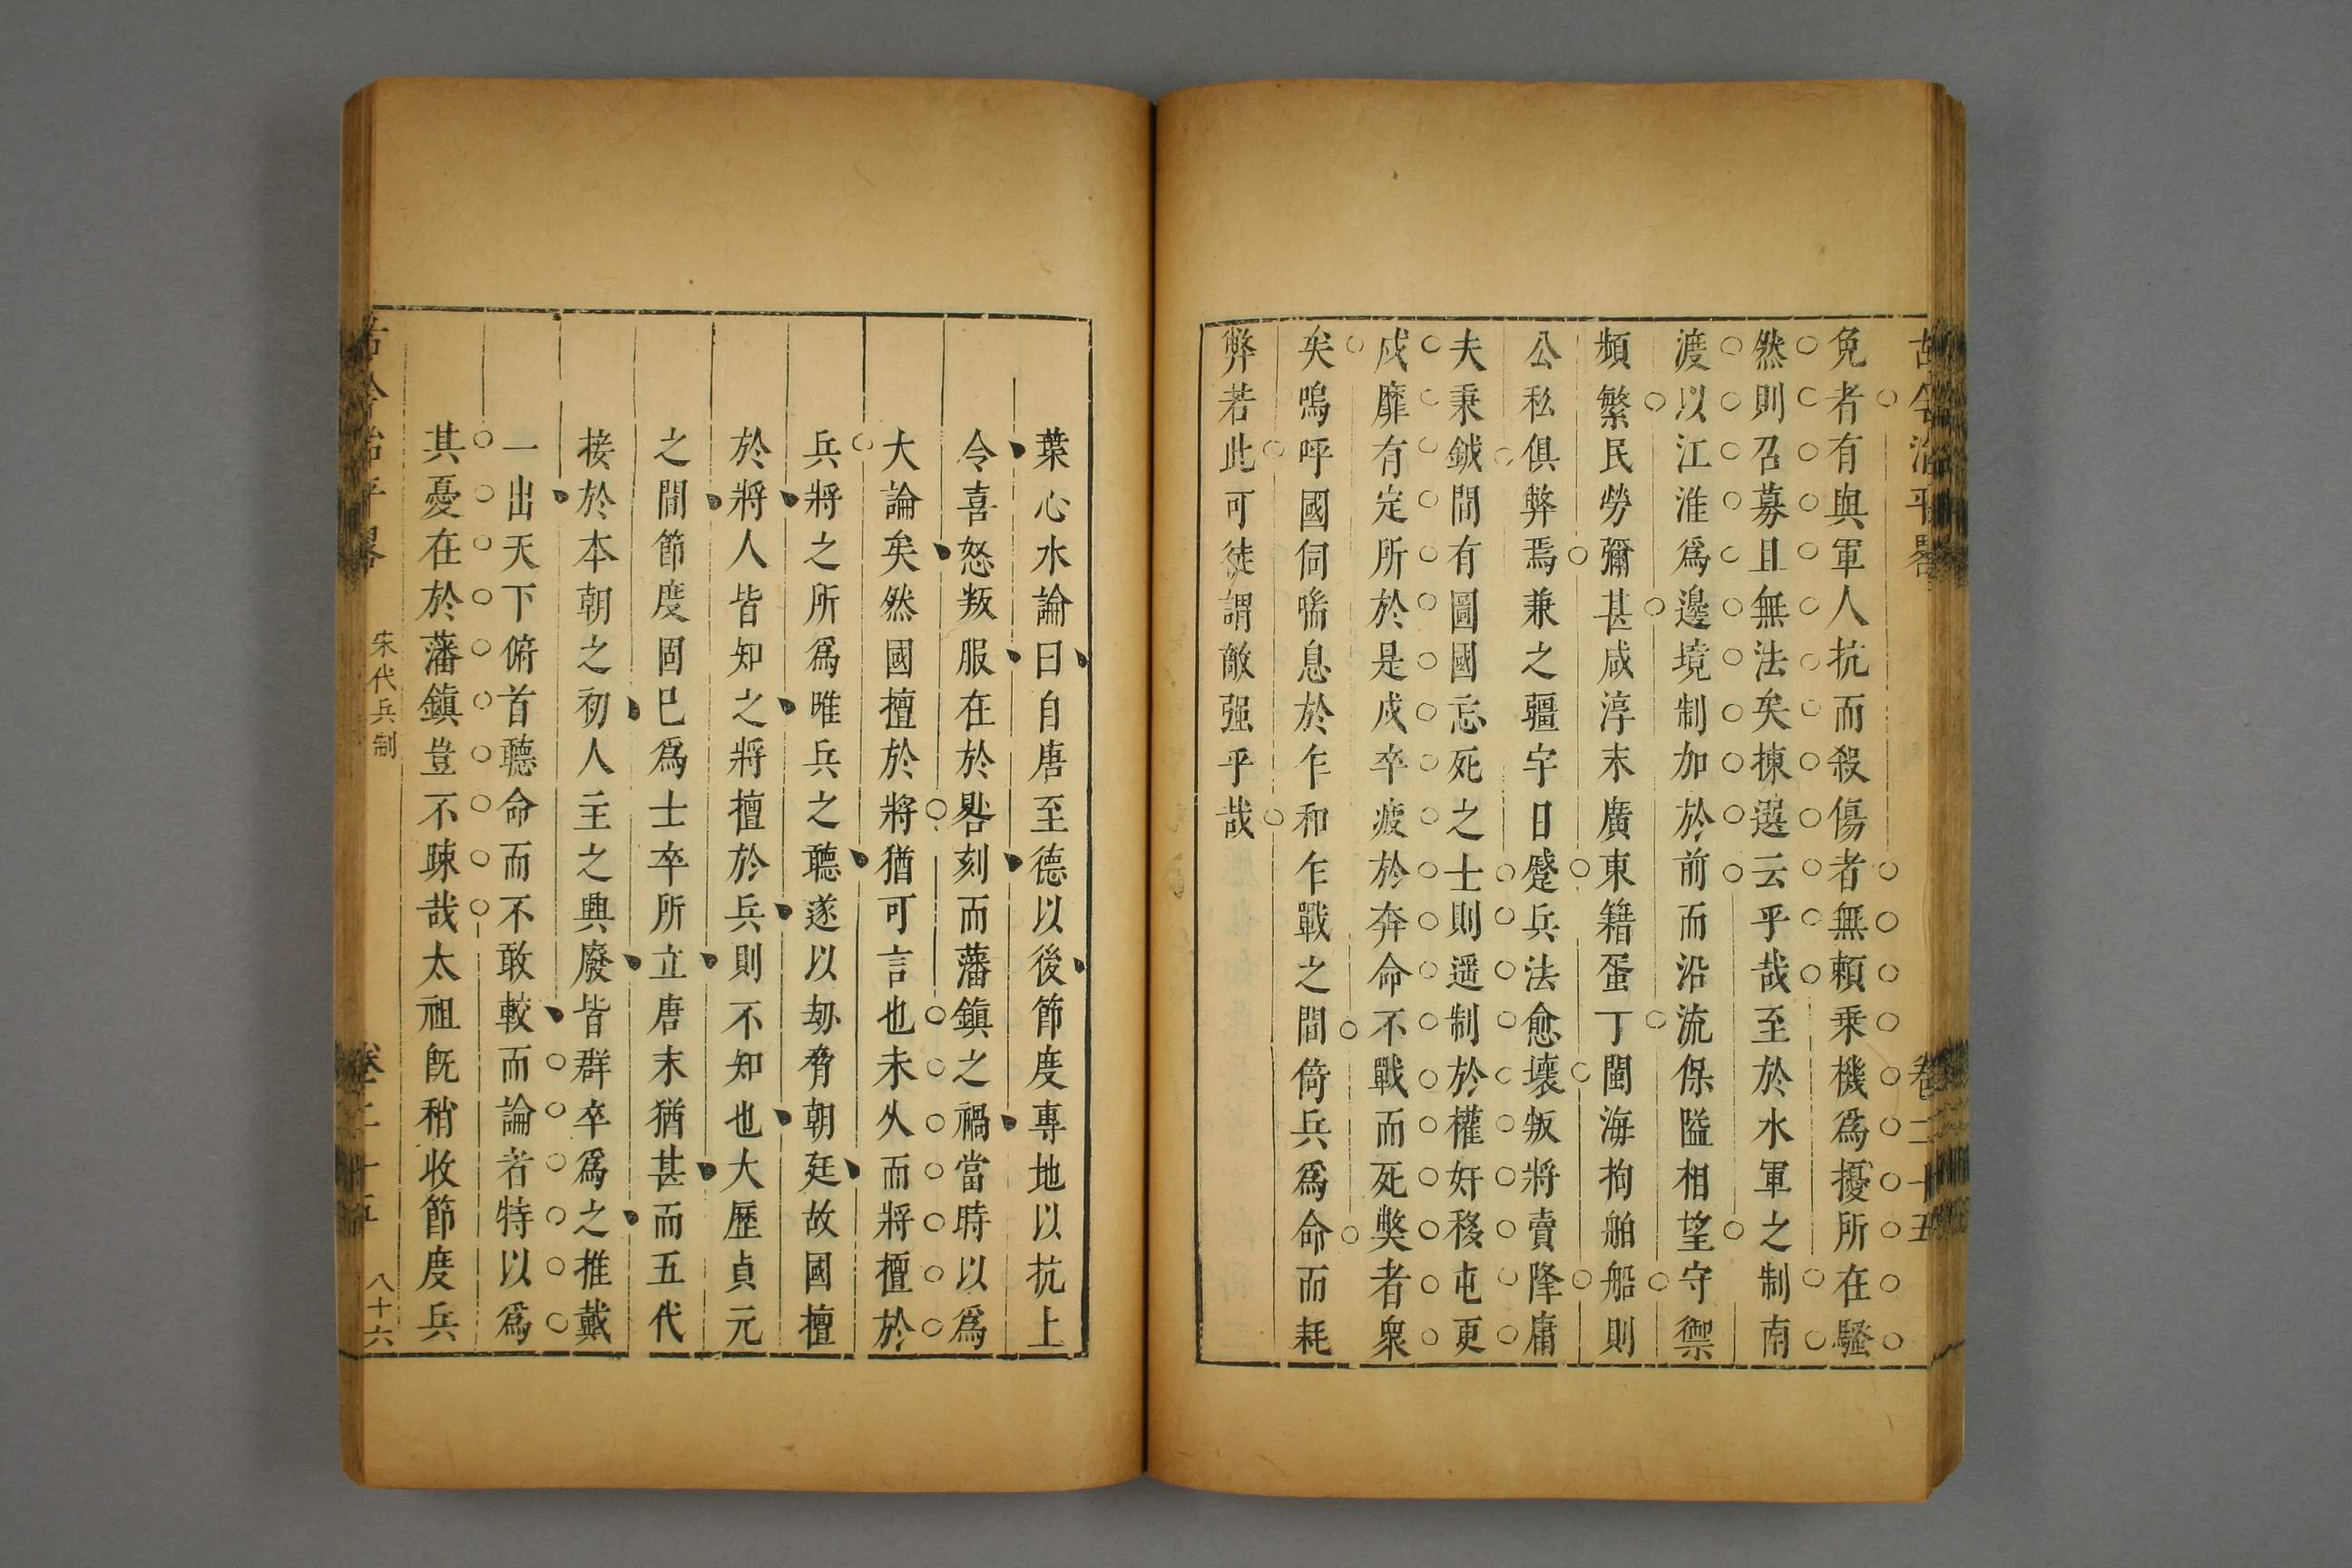 古今治平畧 卷二十五
免者有與軍人抗而殺傷者無賴乘機爲擾所在騷
然則召募且無法矣揀選云乎哉至於水軍之制南
渡以江淮爲邊境制加於前而沿流保隘相望守禦
頻繁民勞彌甚咸淳末廣東籍蛋丁閩海拘舶船則
公私俱弊焉兼之疆宇日蹙兵法愈壞叛將賣降庸
夫秉鉞間有圖國忘死之士則遥制於權奸移屯更
戍靡有定所於是戍卒疲於奔命不戰而死獘者衆
矣嗚呼國伺喘息於乍和乍戰之間倚兵爲命而耗
弊若此可徒謂敵强乎哉
葉心水論曰自唐至德以後節度專地以抗上
令喜怒叛服在於晷刻而藩鎮之禍當時以爲
大論矣然國擅於將猶可言也未乆而將擅於
兵將之所爲唯兵之聽遂以刼脅朝廷故國擅
於將人皆知之將擅於兵則不知也大歷貞元
之間節度固巳爲士卒所立唐末猶甚而五代
接於本朝之初人主之興廢皆群卒爲之推戴
一出天下俯首聽命而不敢較而論者特以爲
其憂在於藩鎮豈不疎哉太祖旣稍收節度兵
古今治平畧 宋代兵制 卷二十五 八十六